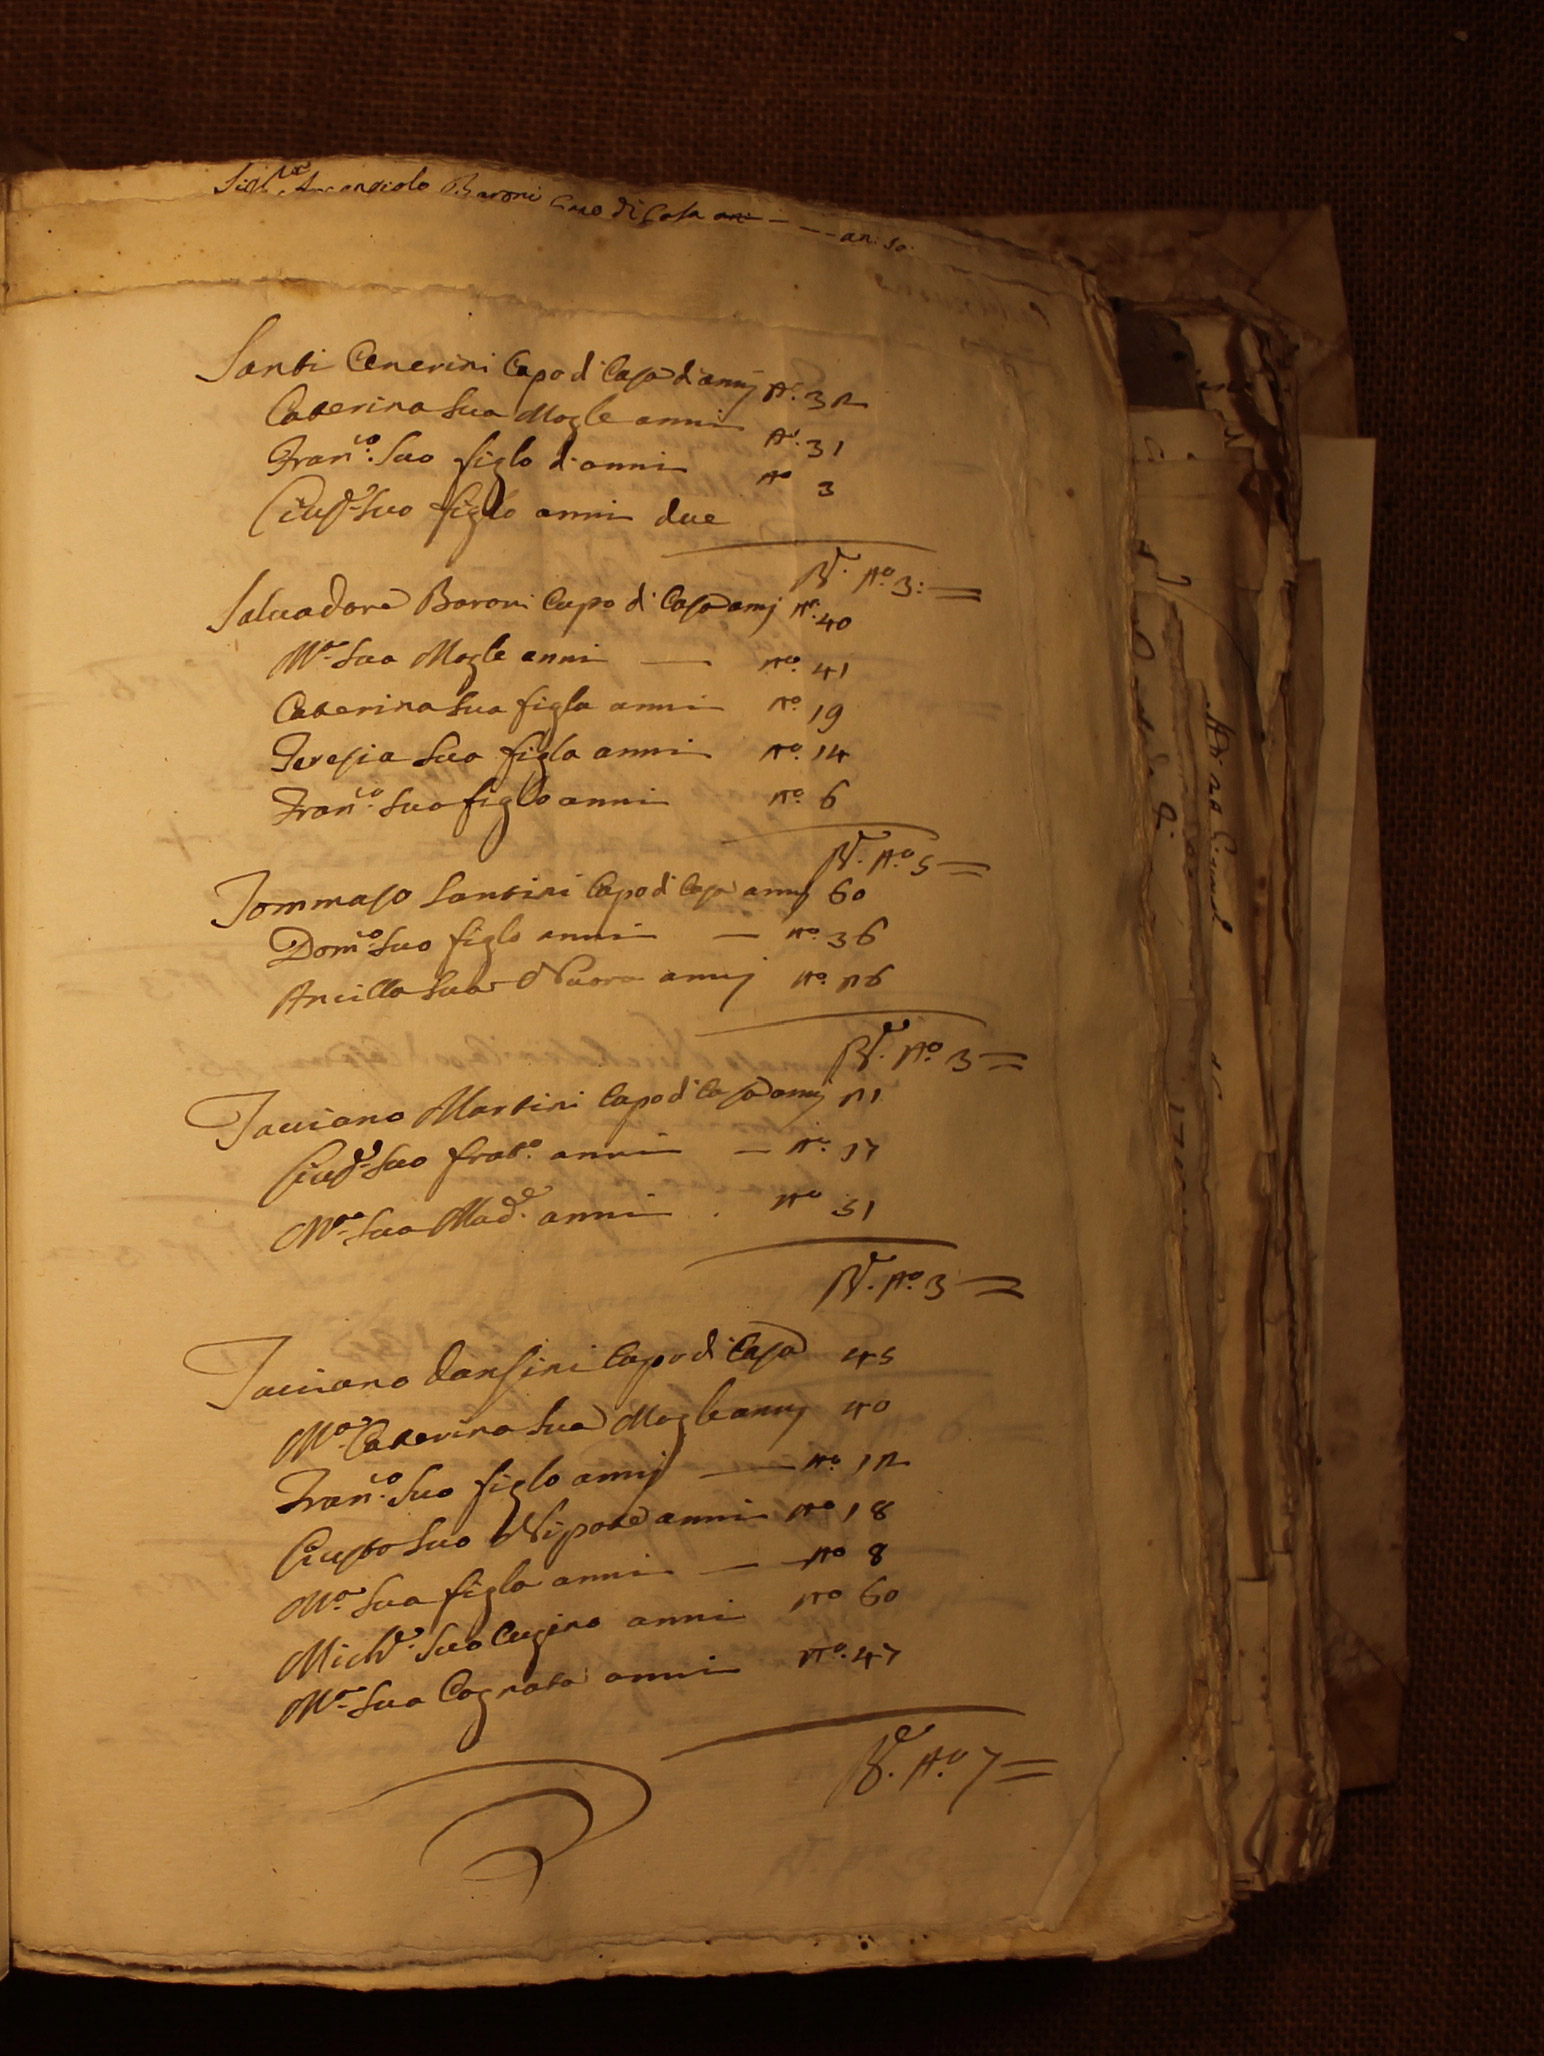 Arcangiolo Baroni Capo di Casa an: 50.
Santi Cenerini Capo di Casa d'annj n.º 32
Caterina Sua Mogle anni n.º 31
Fran.co Suo figlo d'anni nº 3
Giuse Suo figlo anni due
Bc. Nº 3:
Salvadore Baroni Capo di Casa annj nº. 40
Mª. Sua Mogle anni — nº. 41
Caterina Sua figla anni nº. 19
Teresia Sua figla anni nº. 14
Fran.co Suo figlo anni nº. 6
Bc. Nº. 5
Tommaso Santini Capo di Casa annj 60
Dom.co Suo figlo anni — nº. 36
Ancilla Sua Nuora annj nº. 26
Bc. Nº 3
Tacciano Martini Capo di Casa annj 21
Giuse Suo frat.º anni — nº. 17
Mª. Sua Mad.e anni . nº 51
Bc. Nº. 3
Tacciano Dansini Capo di Casa 45
Mª. Caterina Sua Mogle annj 40
Fran.co Suo figlo annj — nº. 12
Giusto Suo Nipote anni nº 18
Mª. Sua figla anni — nº 8
Mich.e Suo Cugino anni nº 60
Mª. Sua Cognata anni nº. 47
Bc. Nº 7